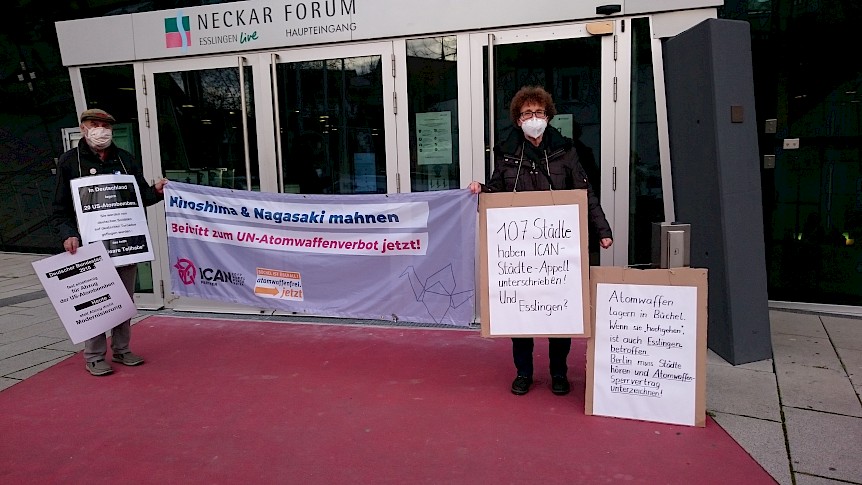 NECKAR FORUM
ESSLINGEN live HAUPTEINGANG
In Deutschland
lagern
20 US-Atombomben.
Deutscher Bundestag
2010
fast einstimmig
für Abzug
der US-Atombomben
Heute
Modernisierung
Hiroshima & Nagasaki mahnen
Beitritt zum UN-Atomwaffenverbot jetzt!
ICAN
BÜCHEL IST ÜBERALL!
atomwaffenfrei.
jetzt
107 Städte
haben ICAN-
Städte-Appell
unterschrieben!
Und
Esslingen?
Atomwaffen
lagern in Büchel.
Wenn sie „hochgehen",
ist auch Esslingen
betroffen.
Berlin muss Städte
hören und Atomwaffen-
Sperrvertrag
unterzeichnen!